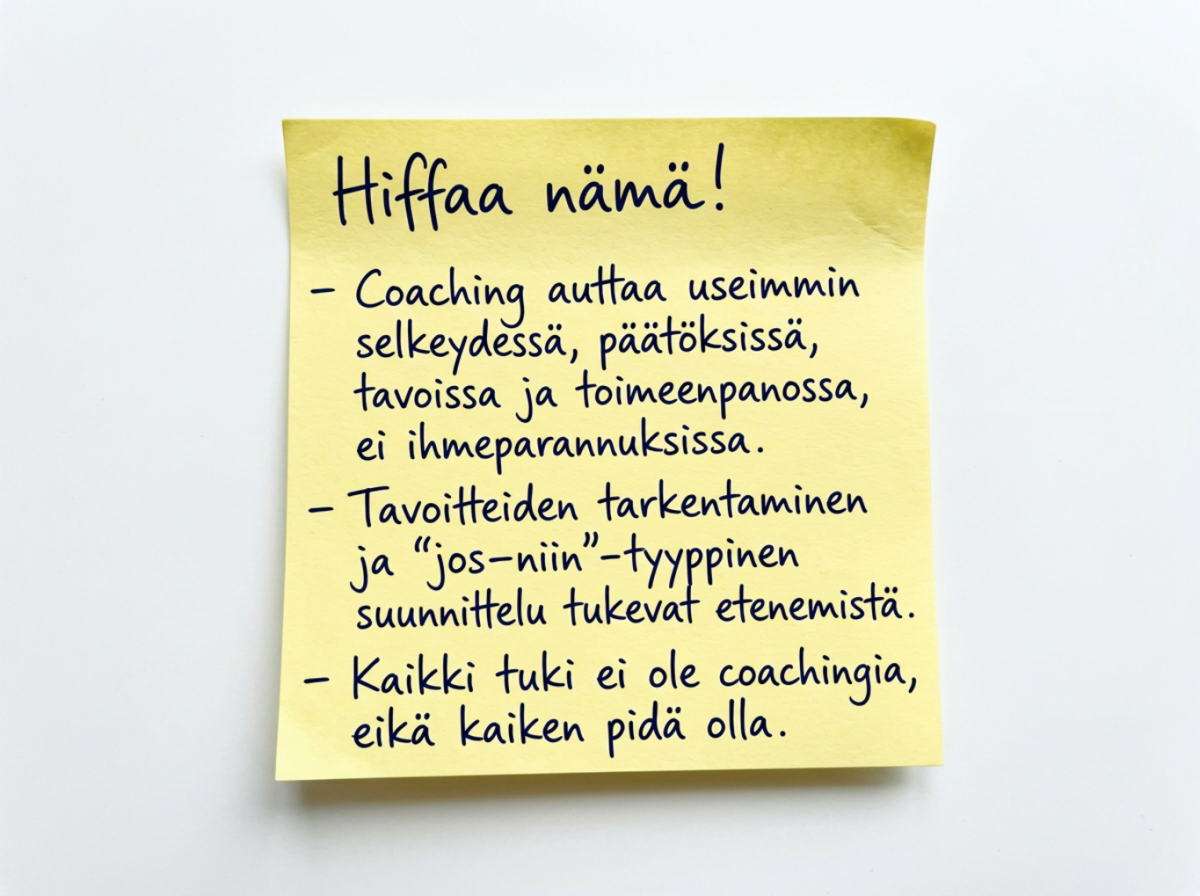 Hiffaa nämä!
- Coaching auttaa useimmin
selkeydessä, päätöksissä,
tavoissa ja toimeenpanossa,
ei ihmeparannuksissa.
- Tavoitteiden tarkentaminen
ja “jos-niin”-tyyppinen
suunnittelu tukevat etenemistä.
- Kaikki tuki ei ole coachingia,
eikä kaiken pidä olla.